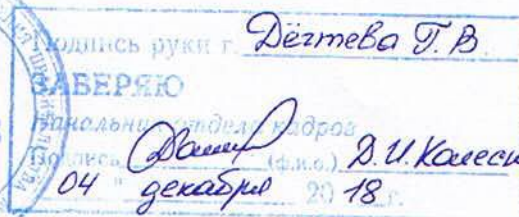 Подпись руки г. Дёгтева Т.В.
ЗАВЕРЯЮ
Начальник отдела кадров
Подпись (ф.и.о.) Д.И. Колесн
04 " декабря 2018 г.